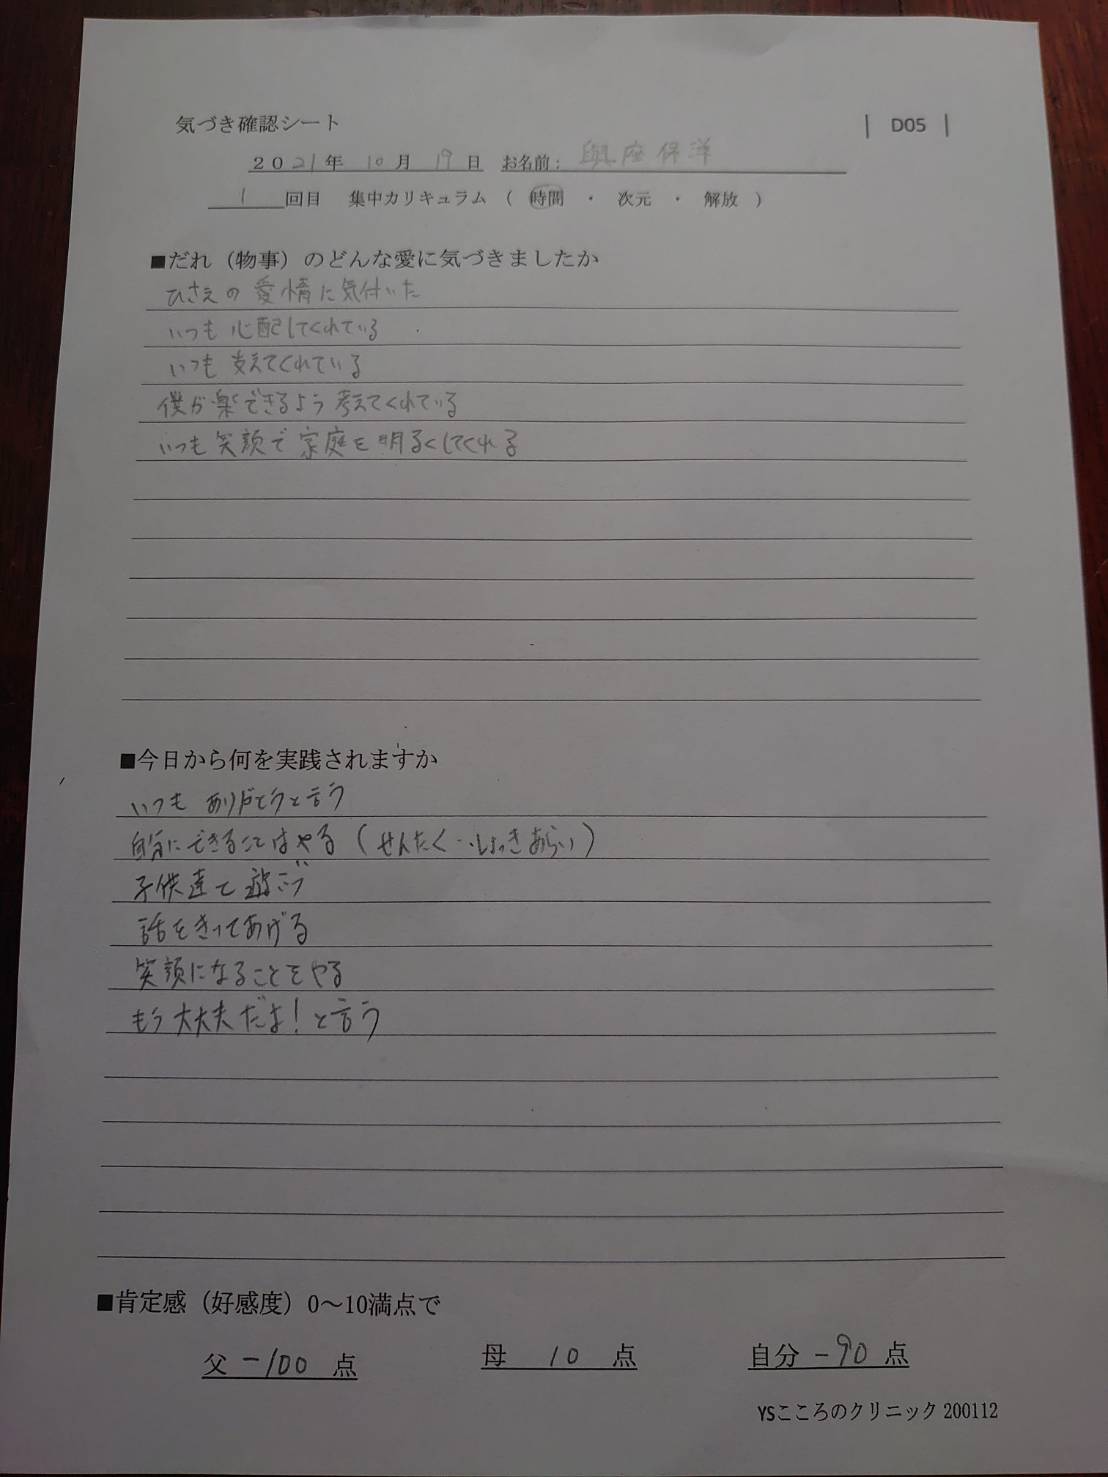 気づき確認シート
| D05 |
2021年 10月 19日 お名前: 與座保洋
1回目 集中カリキュラム ( 時間 ・ 次元 ・ 解放 )
■だれ（物事）のどんな愛に気づきましたか
ひさえの愛情に気付いた
いつも心配してくれている
いつも支えてくれている
僕が楽できるよう考えてくれている
いつも笑顔で家庭を明るくしてくれる
■今日から何を実践されますか
いつもありがとうと言う
自分にできることはやる（せんたく・・しょっきあらい）
子供達と遊ぶ
話をきいてあげる
笑顔になることをやる
もう大丈夫だよ！と言う
■肯定感（好感度）0～10満点で
父 -100 点 母 10 点 自分 -90 点
YSこころのクリニック 200112